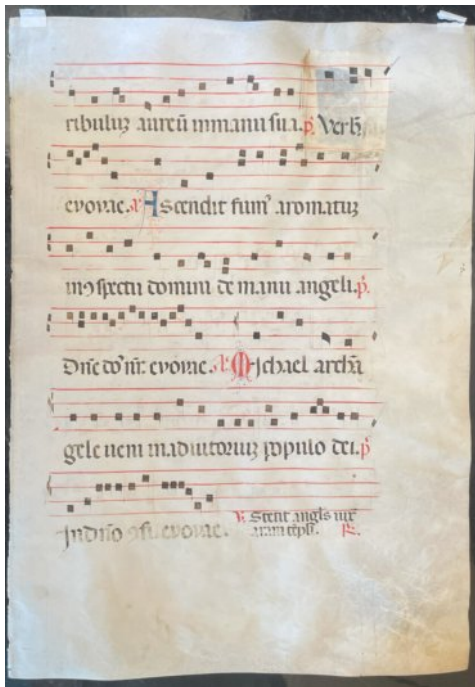 ribuluz aureu in manu sua. p̄. Verb
evovae. A Scendit fum' aromatuz
in ɔspectu domini de manu angeli. p̄.
Dn̄e do' nr̄: evovae. M ichael archā
gele veni in adiutoriuz populo dei. p̄
In dn̄o ɔfi evovae. Stetit angl's iux
aram tēpli.